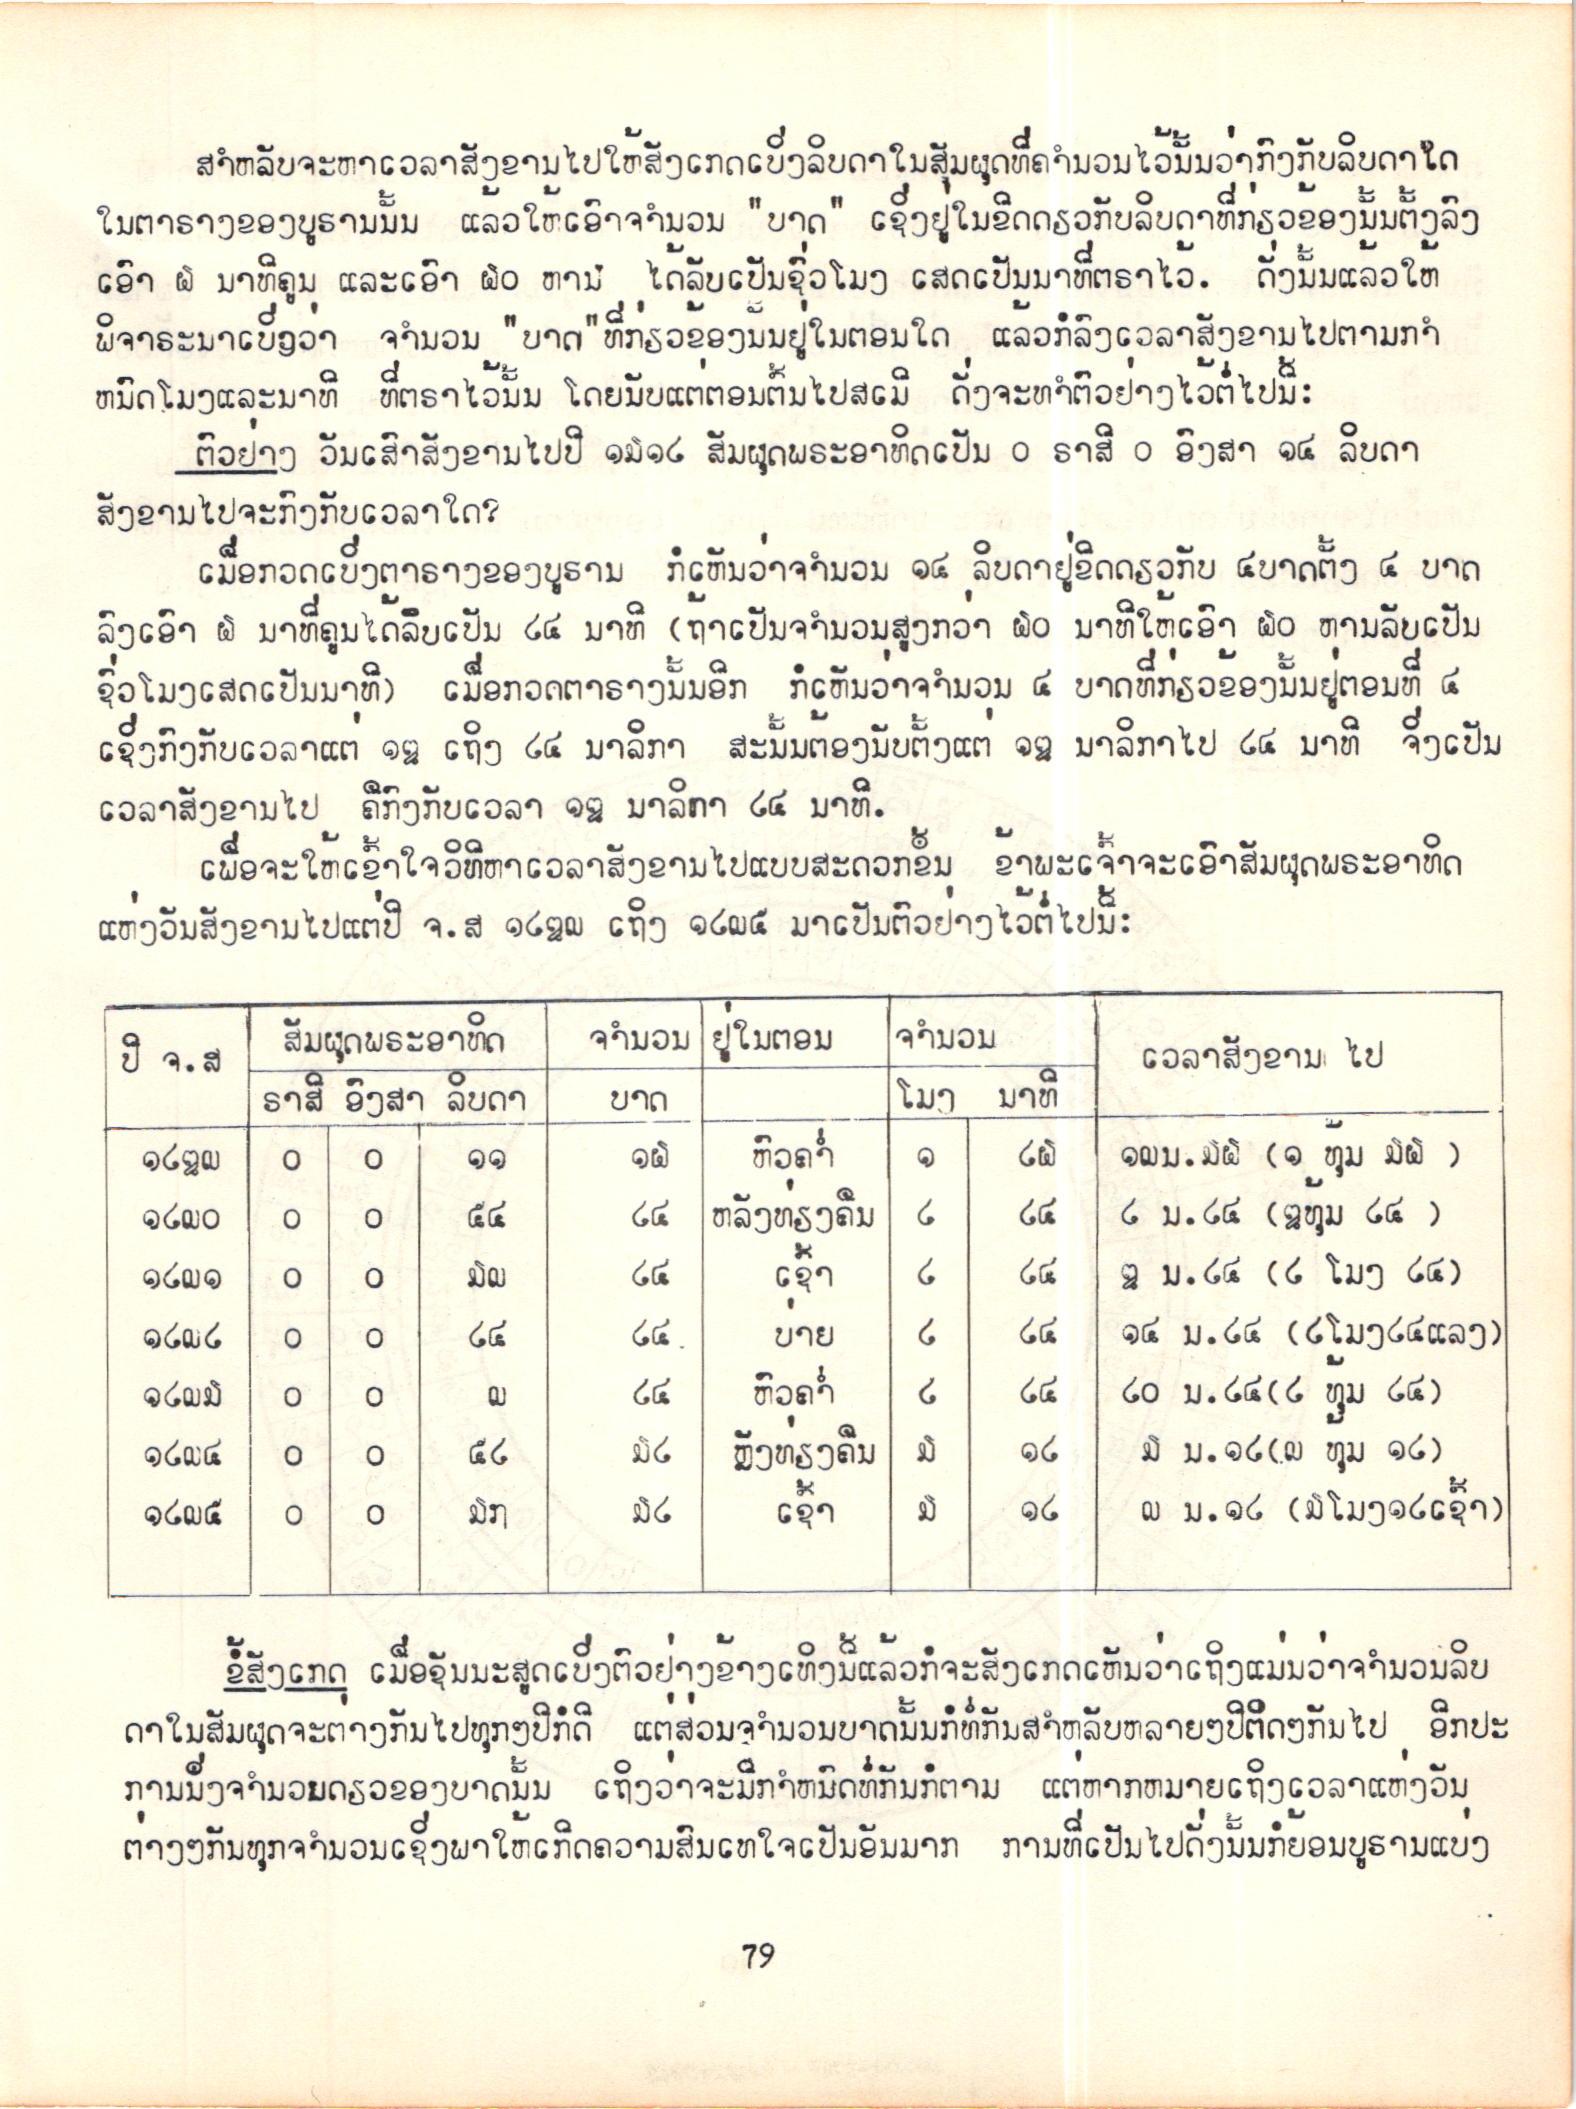 ສຳຫລັບຈະຫາເວລາສັງຂານໄປໃຫ້ສັງເກດເບິ່ງລິບດາໃນສັມຜຸດທີ່ຄຳນວນໄວ້ນັ້ນວ່າກົງກັບລິບດາໃດ
ໃນຕາຣາງຂອງບູຣານນັ້ນ ແລ້ວໃຫ້ເອົາຈຳນວນ "ບາດ" ເຊິ່ງຢູ່ໃນຂີດດຽວກັບລິບດາທີ່ກ່ຽວຂ້ອງນັ້ນຕັ້ງລົງ
ເອົາ ໖ ນາທີຄູນ ແລະເອົາ ໖໐ ຫານ ໄດ້ລັບເປັນຊົ່ວໂມງ ເສດເປັນນາທີຕຣາໄວ້. ດັ່ງນັ້ນແລ້ວໃຫ້
ພິຈາຣະນາເບິ່ງວ່າ ຈຳນວນ "ບາດ"ທີ່ກ່ຽວຂ້ອງນັ້ນຢູ່ໃນຕອນໃດ ແລ້ວກໍລົງເວລາສັງຂານໄປຕາມກຳ
ຫນົດໂມງແລະນາທີ ທີ່ຕຣາໄວ້ນັ້ນ ໂດຍນັບແຕ່ຕອນຕົ້ນໄປສເມີ ດັ່ງຈະທຳຕົວຢ່າງໄວ້ຕໍ່ໄປນີ້:
ຕົວຢ່າງ ວັນເສົາສັງຂານໄປປີ ໑໓໑໒ ສັມຜຸດພຣະອາທິດເປັນ ໐ ຣາສີ ໐ ອົງສາ ໑໔ ລິບດາ
ສັງຂານໄປຈະກົງກັບເວລາໃດ?
ເມື່ອກວດເບິ່ງຕາຣາງຂອງບູຣານ ກໍເຫັນວ່າຈຳນວນ ໑໔ ລິບດາຢູ່ຂີດດຽວກັບ ໔ບາດຕັ້ງ ໔ ບາດ
ລົງເອົາ ໖ ນາທີ່ຄູນໄດ້ລຶບເປັນ ໒໔ ນາທີ (ຖ້າເປັນຈຳນວນສູງກວ່າ ໖໐ ນາທີໃຫ້ເອົາ ໖໐ ຫານລັບເປັນ
ຊົ່ວໂມງເສດເປັນນາທີ) ເມື່ອກວດຕາຣາງນັ້ນອີກ ກໍເຫັນວ່າຈຳນວນ ໔ ບາດທີ່ກ່ຽວຂ້ອງນັ້ນຢູ່ຕອນທີ່ ໔
ເຊິ່ງກົງກັບເວລາແຕ່ ໑໘ ເຖິງ ໒໔ ນາລິກາ ສະນັ້ນຕ້ອງນັບຕັ້ງແຕ່ ໑໘ ນາລິກາໄປ ໒໔ ນາທີ ຈຶ່ງເປັນ
ເວລາສັງຂານໄປ ຄືກົງກັບເວລາ ໑໘ ນາລິກາ ໒໔ ນາທີ.
ເພື່ອຈະໃຫ້ເຂົ້າໃຈວິທີຫາເວລາສັງຂານໄປແບບສະດວກຂຶ້ນ ຂ້າພະເຈົ້າຈະເອົາສັມຜຸດພຣະອາທິດ
ແຫ່ງວັນສັງຂານໄປແຕ່ປີ ຈ.ສ ໑໒໘໙ ເຖິງ ໑໒໙໕ ມາເປັນຕົວຢ່າງໄວ້ຕໍ່ໄປນີ້:
ປີ ຈ.ສ ສັມຜຸດພຣະອາທິດ ຈຳນວນ ຢູ່ໃນຕອນ ຈຳນວນ ເວລາສັງຂານ ໄປ
ຣາສີ ອົງສາ ລິບດາ ບາດ ໂມງ ນາທີ
໑໒໘໙ ໐ ໐ ໑໑ ໑໖ ຫົວຄ່ຳ ໑ ໒໖ ໑໙ນ.໓໖ (໑ ທຸ້ມ ໓໖ )
໑໒໙໐ ໐ ໐ ໕໔ ໒໔ ຫລັງທ່ຽງຄືນ ໒ ໒໔ ໒ ນ.໒໔ (໘ທຸ້ມ ໒໔ )
໑໒໙໑ ໐ ໐ ໓໙ ໒໔ ເຊົ້າ ໒ ໒໔ ໘ ນ.໒໔ (໒ ໂມງ ໒໔)
໑໒໙໒ ໐ ໐ ໒໔ ໒໔ ບ່າຍ ໒ ໒໔ ໑໔ ນ.໒໔ (໒ໂມງ໒໔ແລງ)
໑໒໙໓ ໐ ໐ ໙ ໒໔ ຫົວຄ່ຳ ໒ ໒໔ ໒໐ ນ.໒໔(໒ ທຸ້ມ ໒໔)
໑໒໙໔ ໐ ໐ ໕໒ ໓໒ ຫຼັງທ່ຽງຄືນ ໓ ໑໒ ໓ ນ.໑໒(໙ ທຸ້ມ ໑໒)
໑໒໙໕ ໐ ໐ ໓໗ ໓໒ ເຊົ້າ ໓ ໑໒ ໙ ນ.໑໒ (໓ໂມງ໑໒ເຊົ້າ)
ຂໍ້ສັງເກດ ເມື່ອຊັນນະສູດເບິ່ງຕົວຢ່າງຂ້າງເທິງນີ້ແລ້ວກໍຈະສັງເກດເຫັນວ່າເຖິງແມ່ນວ່າຈຳນວນລິບ
ດາໃນສັມຜຸດຈະຕ່າງກັນໄປທຸກໆປີກໍດີ ແຕ່ສ່ວນຈຳນວນບາດນັ້ນກໍທໍ່ກັນສຳຫລັບຫລາຍໆປີຕິດໆກັນໄປ ອີກປະ
ການນຶ່ງຈຳນວນດຽວຂອງບາດນັ້ນ ເຖິງວ່າຈະມີກຳຫນົດທໍ່ກັນກໍຕາມ ແຕ່ຫາກຫມາຍເຖິງເວລາແຫ່ງວັນ
ຕ່າງໆກັນທຸກຈຳນວນເຊິ່ງພາໃຫ້ເກີດຄວາມສົນເທໃຈເປັນອັນມາກ ການທີ່ເປັນໄປດັ່ງນັ້ນກໍຍ້ອນບູຣານແບ່ງ
79